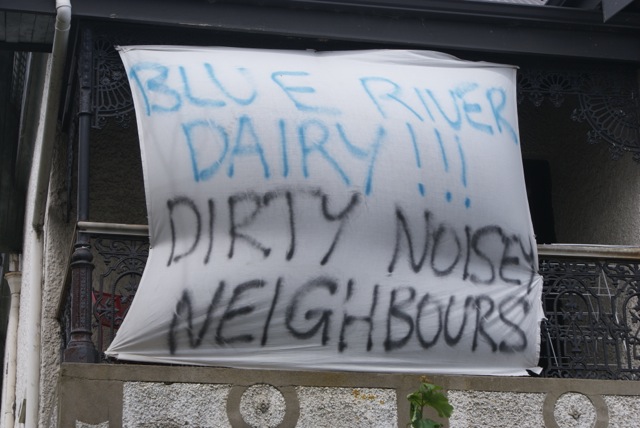 BLUE RIVER
DAIRY!!!
DIRTY NOISEY
NEIGHBOURS